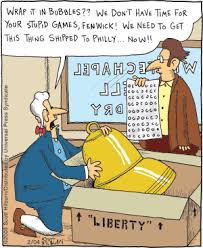 WRAP IT IN BUBBLES?? WE DON'T HAVE TIME FOR
YOUR STUPID GAMES, FENWICK! WE NEED TO GET
THIS THING SHIPPED TO PHILLY... NOW!!
WHITECHAPEL
BELL
DRY
"LIBERTY"
Scott Hilburn/Distributed by Universal Press Syndicate
2/04